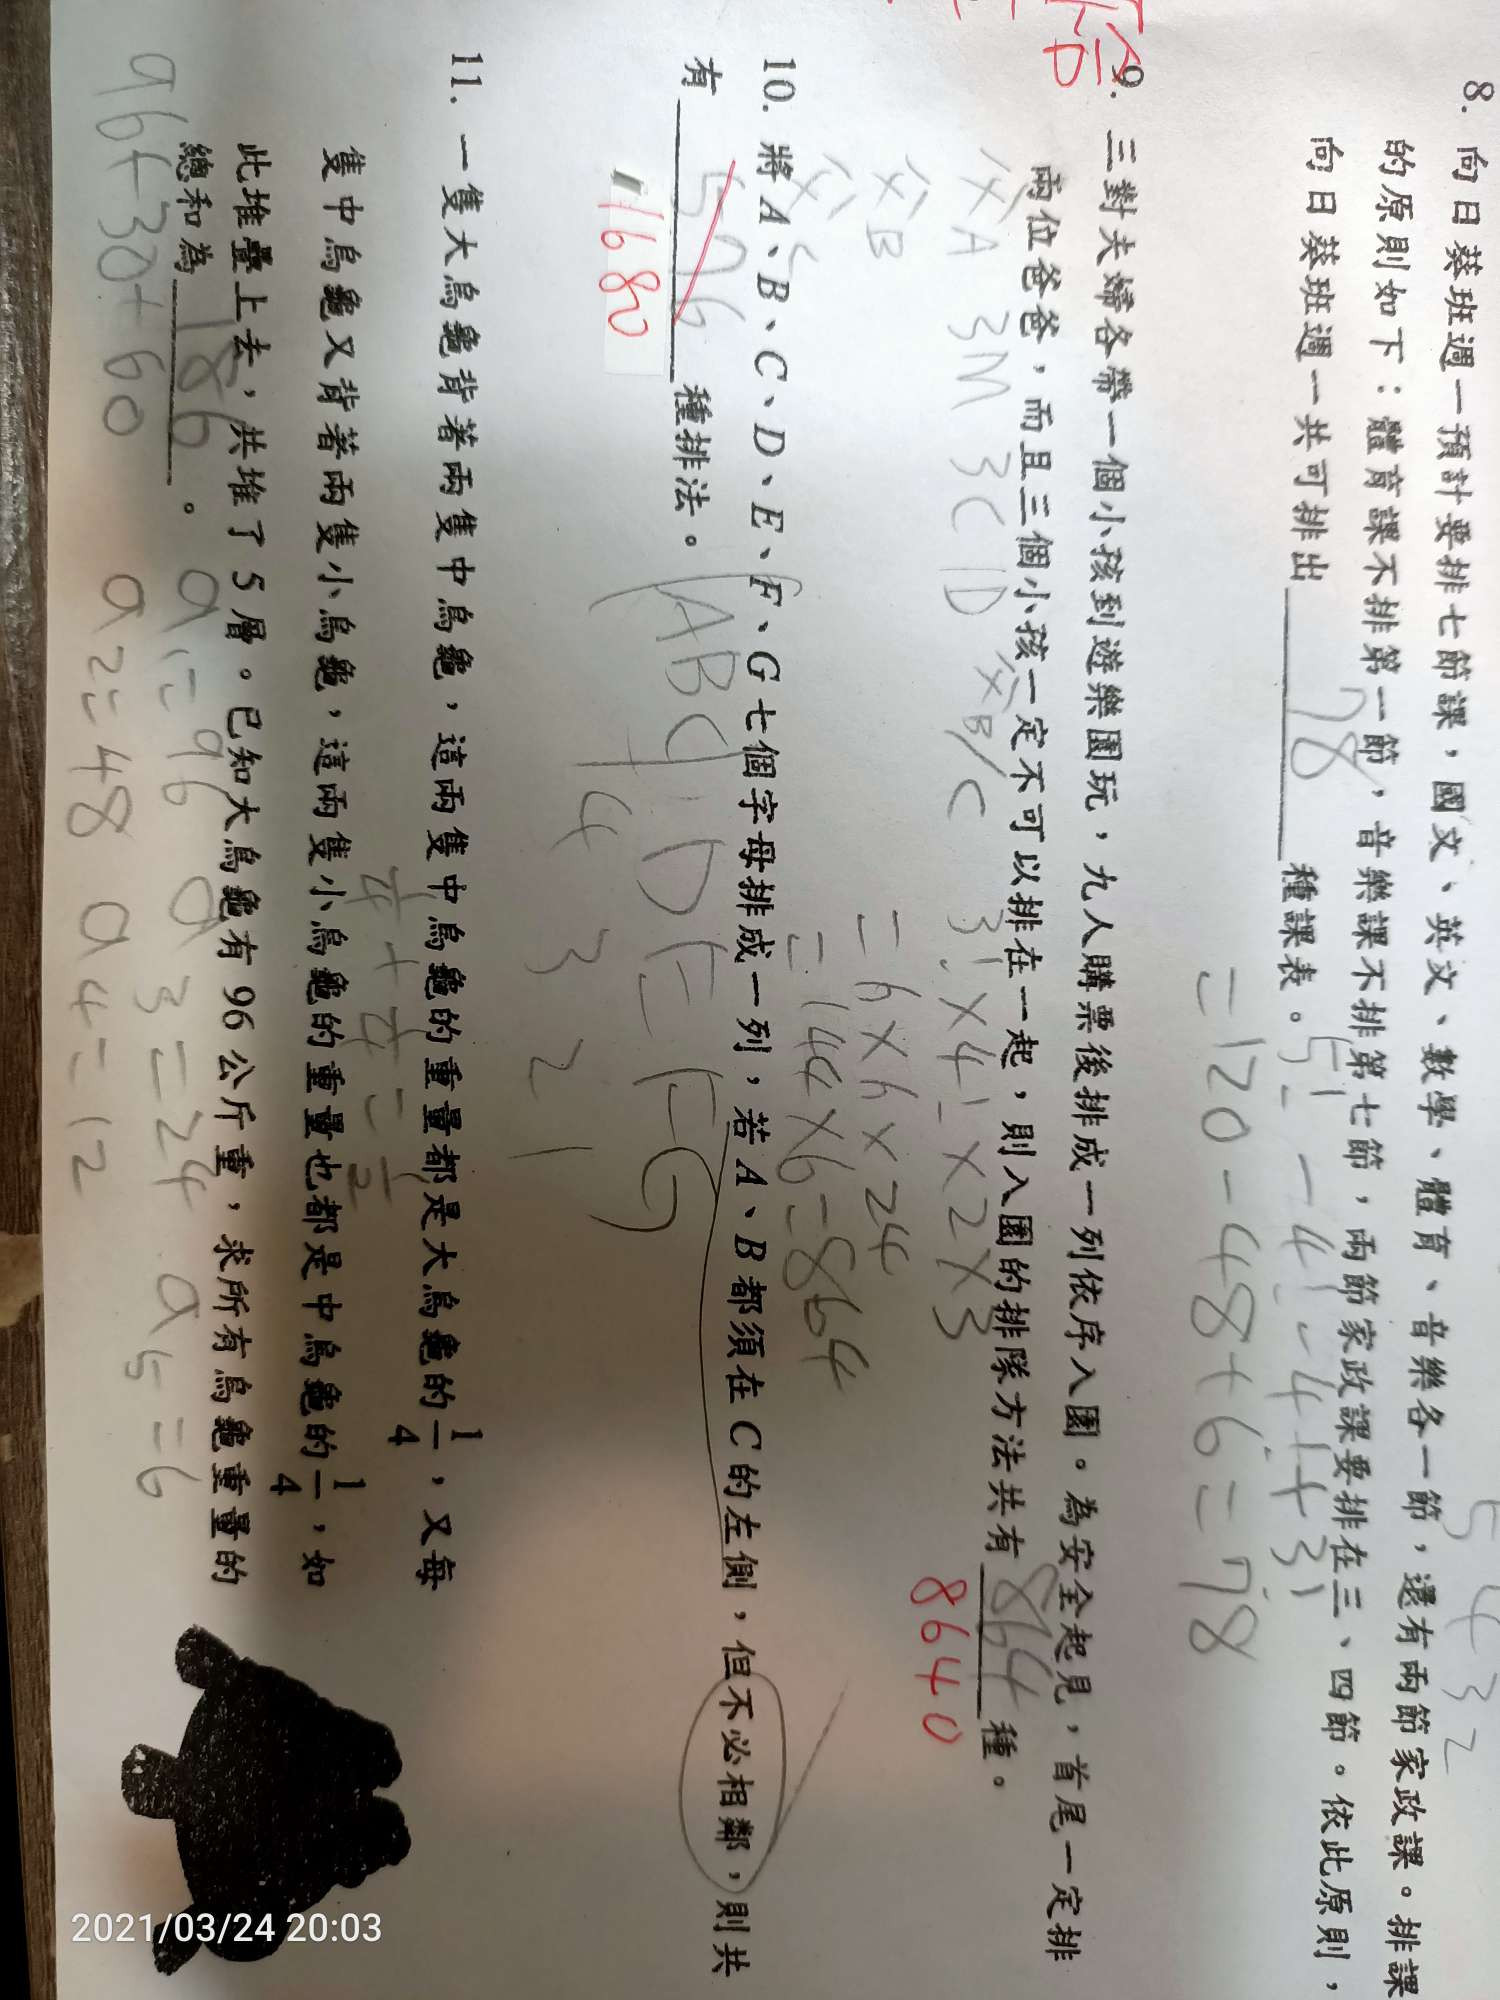 8. 向日葵班週一預計要排七節課，國文、英文、數學、體育、音樂各一節，還有兩節家政課。排課
的原則如下：體育課不排第一節，音樂課不排第七節，兩節家政課要排在三、四節。依此原則，
向日葵班週一共可排出 78 種課表。
5! - 4! - 4! + 3!
= 120 - 48 + 6 = 78
9. 三對夫婦各帶一個小孩到遊樂園玩，九人購票後排成一列依序入園。為安全起見，首尾一定排
兩位爸爸，而且三個小孩一定不可以排在一起，則入園的排隊方法共有 864 種。
8640
父A 3M 3C 1D 父B/C
父B
3! × 4! × 2 × 3
= 6 × 6 × 24
= 144 × 6 = 864
10. 將 A、B、C、D、E、F、G 七個字母排成一列，若 A、B 都須在 C 的左側，但不必相鄰，則共
有 596 種排法。
1680
ABC DEFG
4 3 2 1
11. 一隻大烏龜背著兩隻中烏龜，這兩隻中烏龜的重量都是大烏龜的 1/4，又每
隻中烏龜又背著兩隻小烏龜，這兩隻小烏龜的重量也都是中烏龜的 1/4，如
此堆疊上去，共堆了 5 層。已知大烏龜有 96 公斤重，求所有烏龜重量的
總和為 186 。
1/4 + 1/4 = 1/2
a1 = 96 a3 = 24 a5 = 6
a2 = 48 a4 = 12
96 + 30 + 60
2021/03/24 20:03